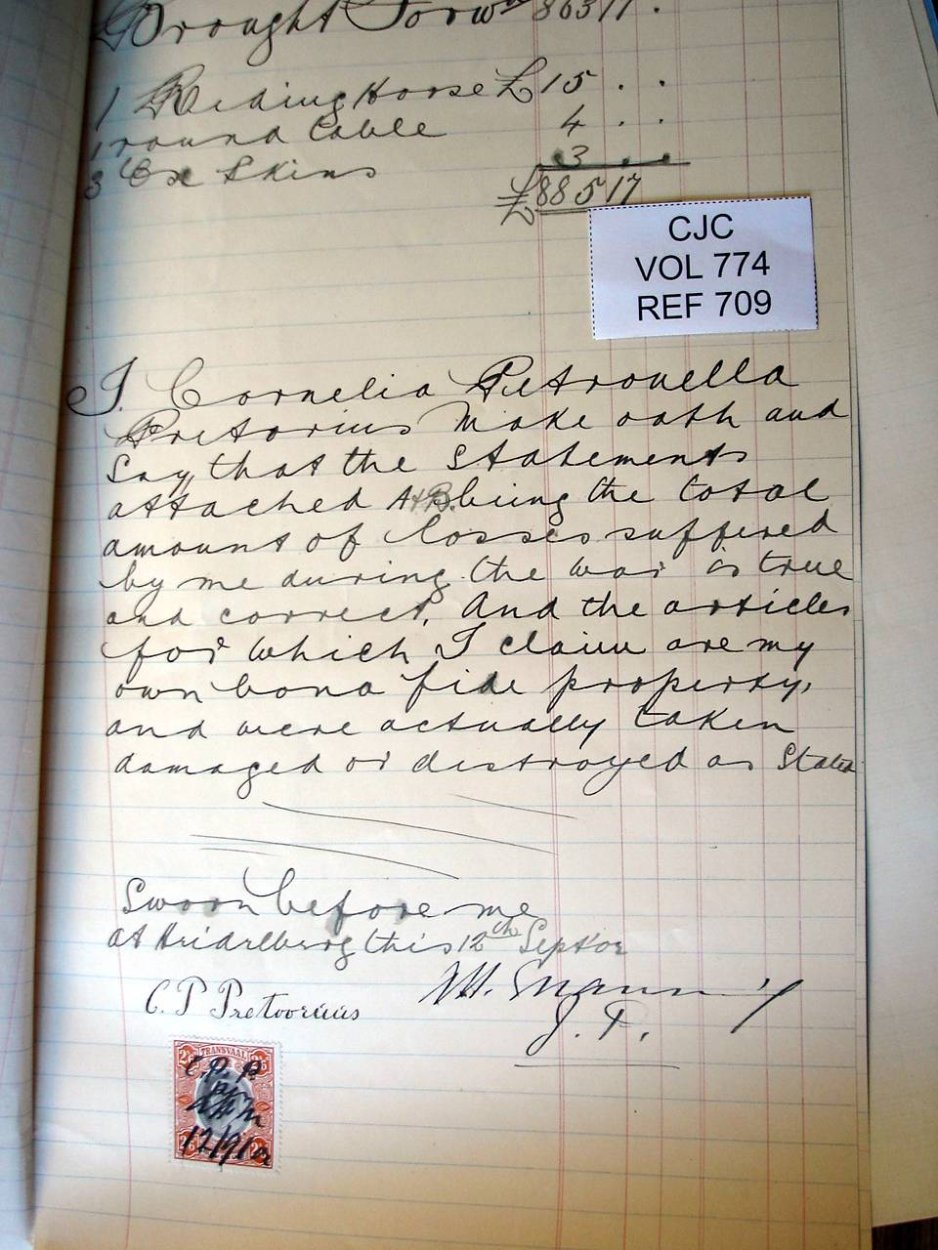 Brought Forwd 863 17 .
1 Riding Horse £15 . .
1 round table 4 . .
3 Ox Skins 3 . .
£885 17
CJC
VOL 774
REF 709
I. Cornelia Petronella
Pretorius make oath and
say, that the statements
attached A+B. being the total
amount of losses suffered
by me during the war is true
and correct. And the articles
for which I claim are my
own bona fide property,
and were actually taken
damaged or destroyed as stated
Sworn before me
at Heidelberg this 12th Septbr
C. P Pretoorius
J. P.
TRANSVAAL
C. P. P
12/9/02